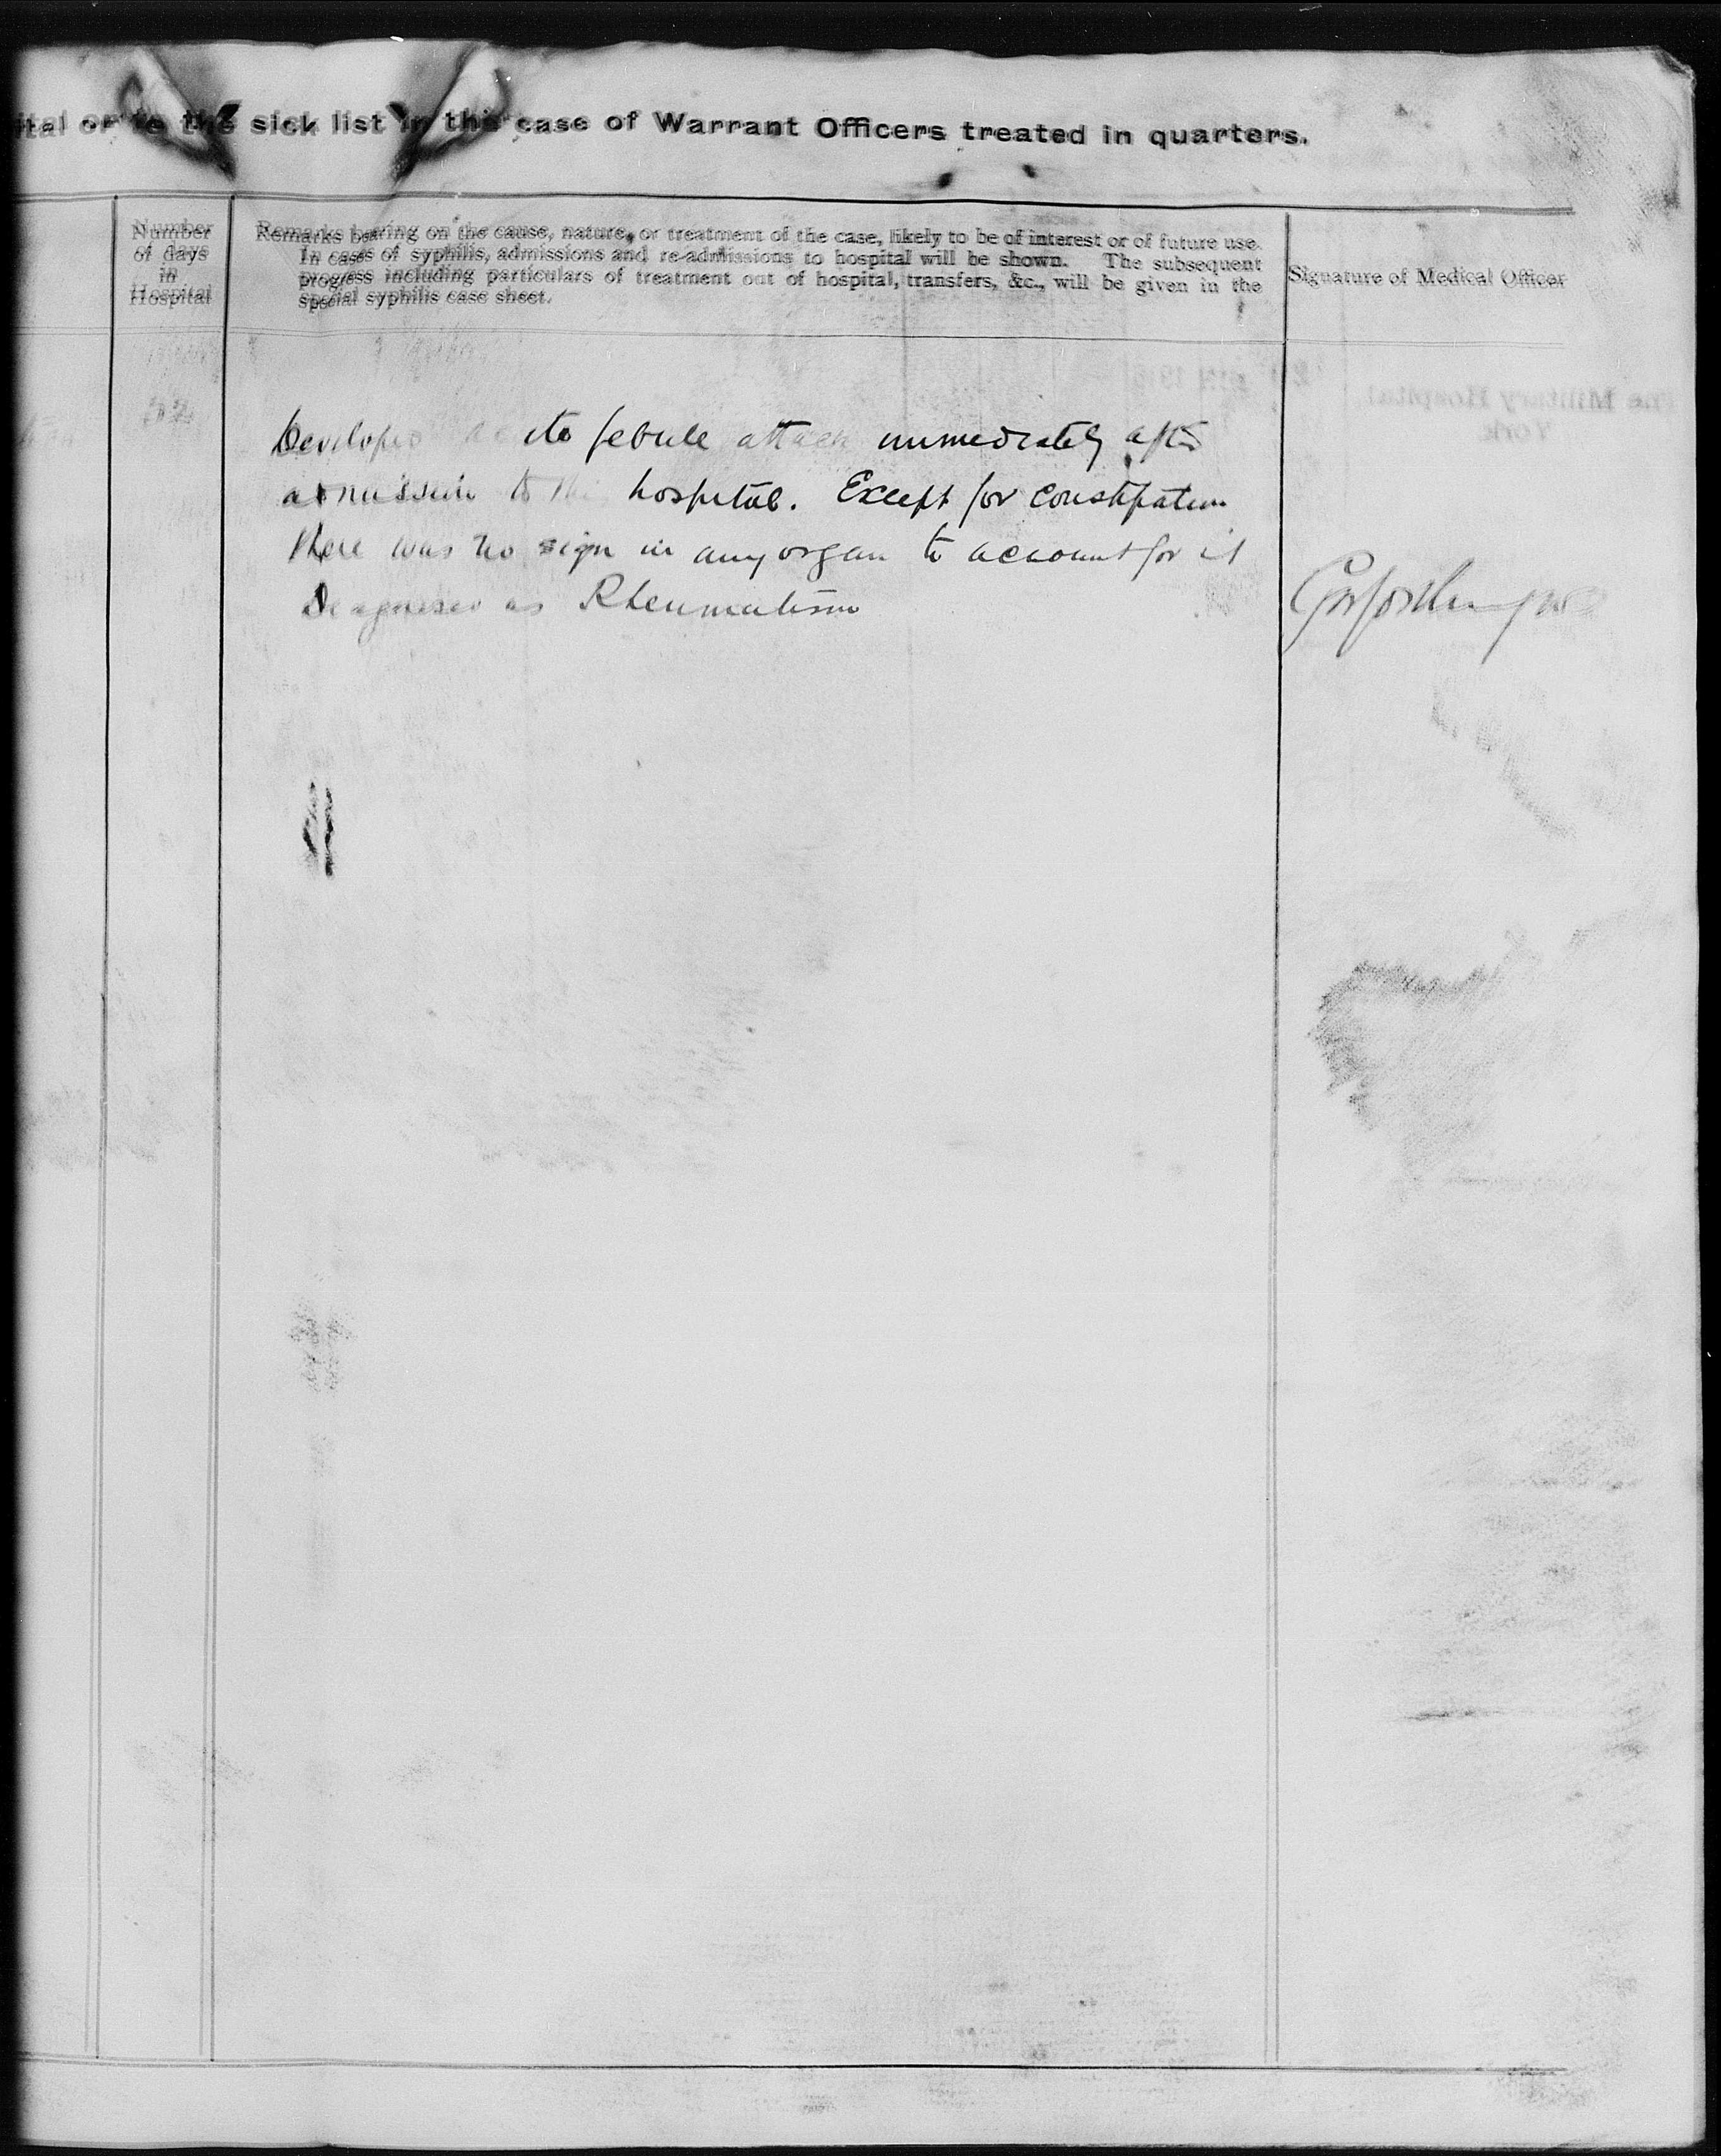 sick list in this case of Warrant Officers treated in quarters.
Number
of days
in
Hospital
Remarks bearing on the cause, nature, or treatment of the case, likely to be of interest or of future use.
In cases of syphilis, admissions and re-admissions to hospital will be shown. The subsequent
progress including particulars of treatment out of hospital, transfers, &c., will be given in the
special syphilis case sheet.
Signature of Medical Officer
32
Developed acute febrile attack immediately after
admission to this hospital. Except for constipation
there was no sign in any organ to account for it
Diagnosed as Rheumatism
The Military Hospital,
York